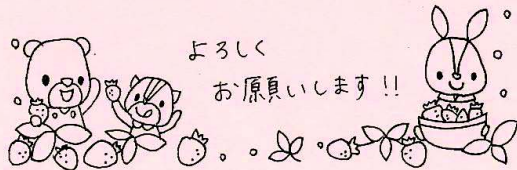 よろしく
お願いします!!